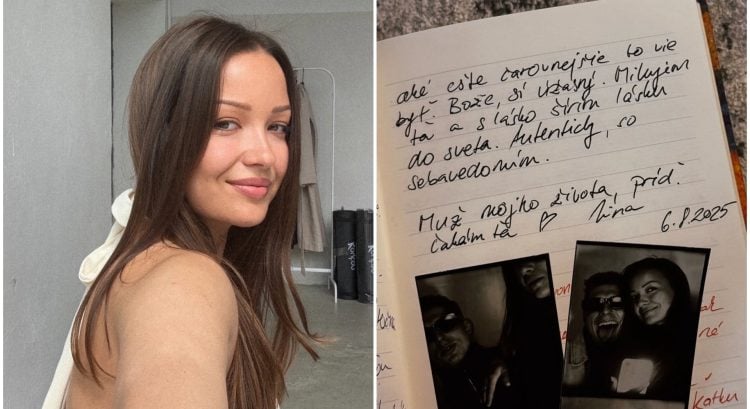 aké ešte čarovnejšie to vie
byť. Bože, si úžasný. Milujem
ťa a s lásko šírim lásku
do sveta. Autenticky, so
sebavedomím.
Muž mojho života, príď.
čakám ťa ♡ Nina
6.8.2025
né
katku